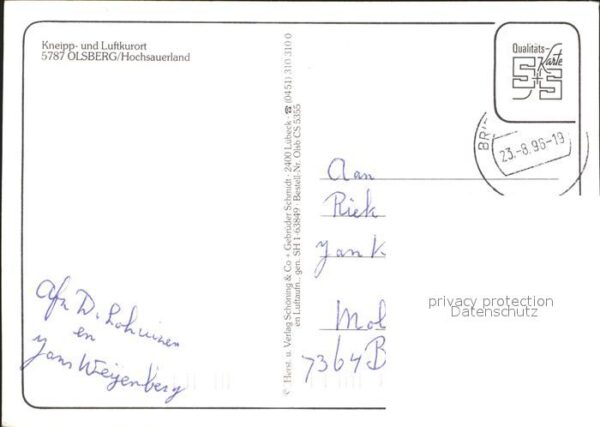 Kneipp- und Luftkurort
5787 OLSBERG/Hochsauerland
Qualitäts-
Karte
S+S
23.-8.96-19
© Herst. u. Verlag Schöning & Co + Gebrüder Schmidt · 2400 Lübeck · ☎ (0451) 310 310 0
en Luftaufn.. gen. SH 1-63849 · Bestell-Nr. Olsb CS 5355
Aan
Riek
Jan K
Mol
7364 B
Afz D. Lohuizen
en
Jans Weijenberg
privacy protection
Datenschutz